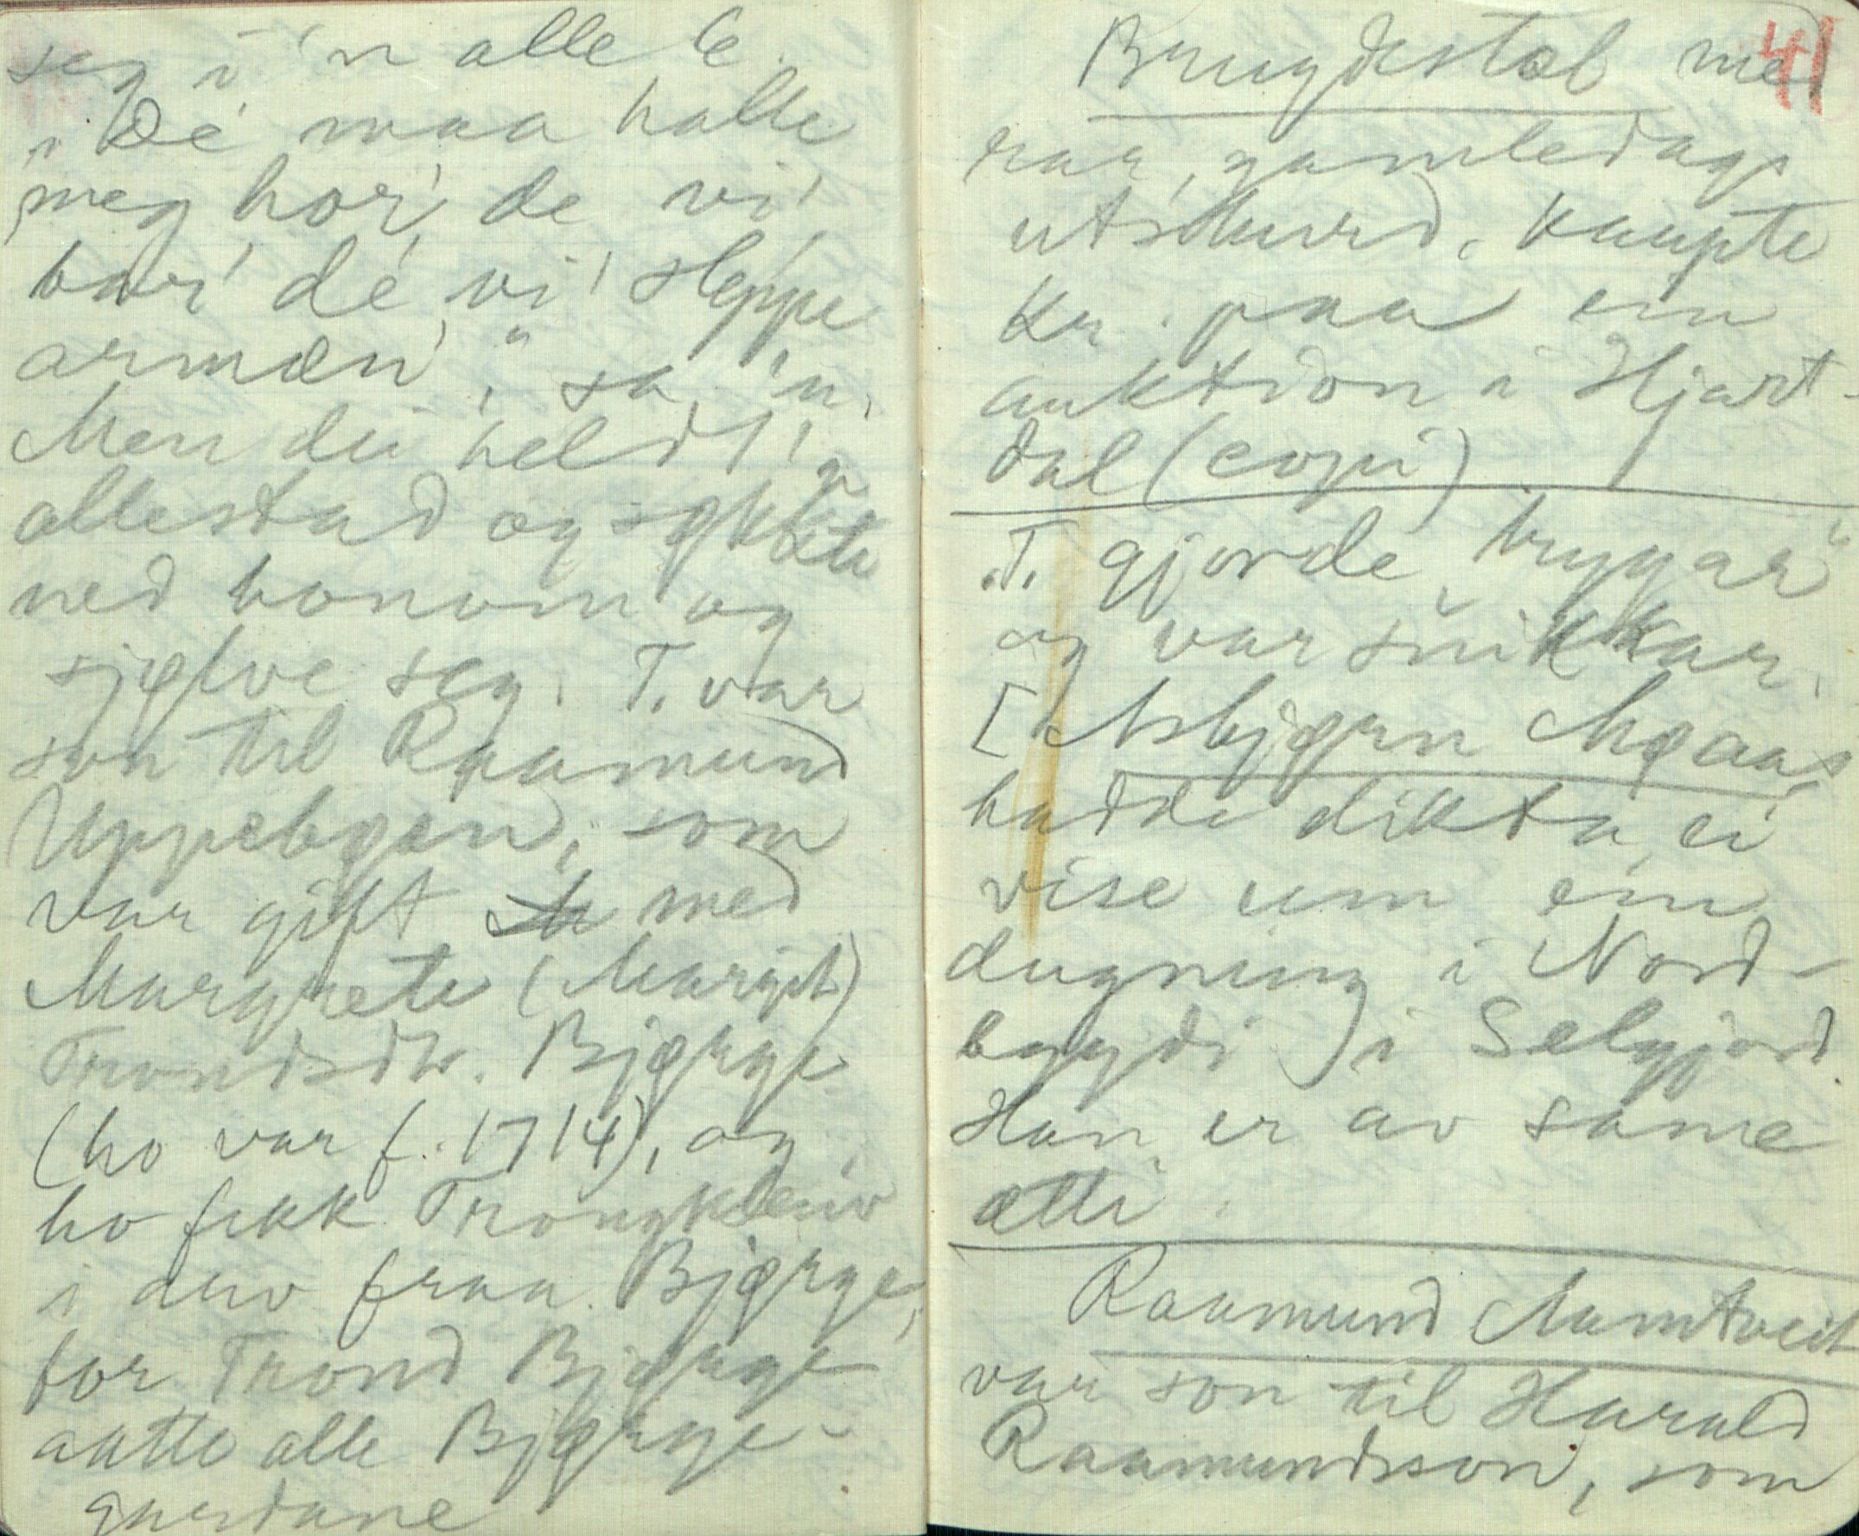 seg i 'n alle 6.
"De maa halle
meg hor' de vi'
bar' de vi' sleppe
armæn'," sa 'n.
Men dei heldt 'n
allestad og sökkte
ned honom og
sjølve seg. T. var
son til Raamund
Uppebøen, som
var gift med
Margrete (Margit)
Trondsdtr. Bjørge
(ho var f. 1714), og
ho fekk Trongkleiv
i arv fraa Bjørge,
for Trond Bjørge
aatte alle Bjørge-
gardane
41
Brugdestol med
rar, gamledags
utskurd, kaupte
Kr. paa ein
auktion i Hjart-
dal (copi)
T. gjorde "bryggar"
og var snikkar.
[Asbjørn Moaas
hadde dikta ei
vise um ein
dugning i Nord-
bygdi i Selgjord.
Han er av same
ætti.
Raamund Aamtveit
var son til Harald
Raamundsson, som